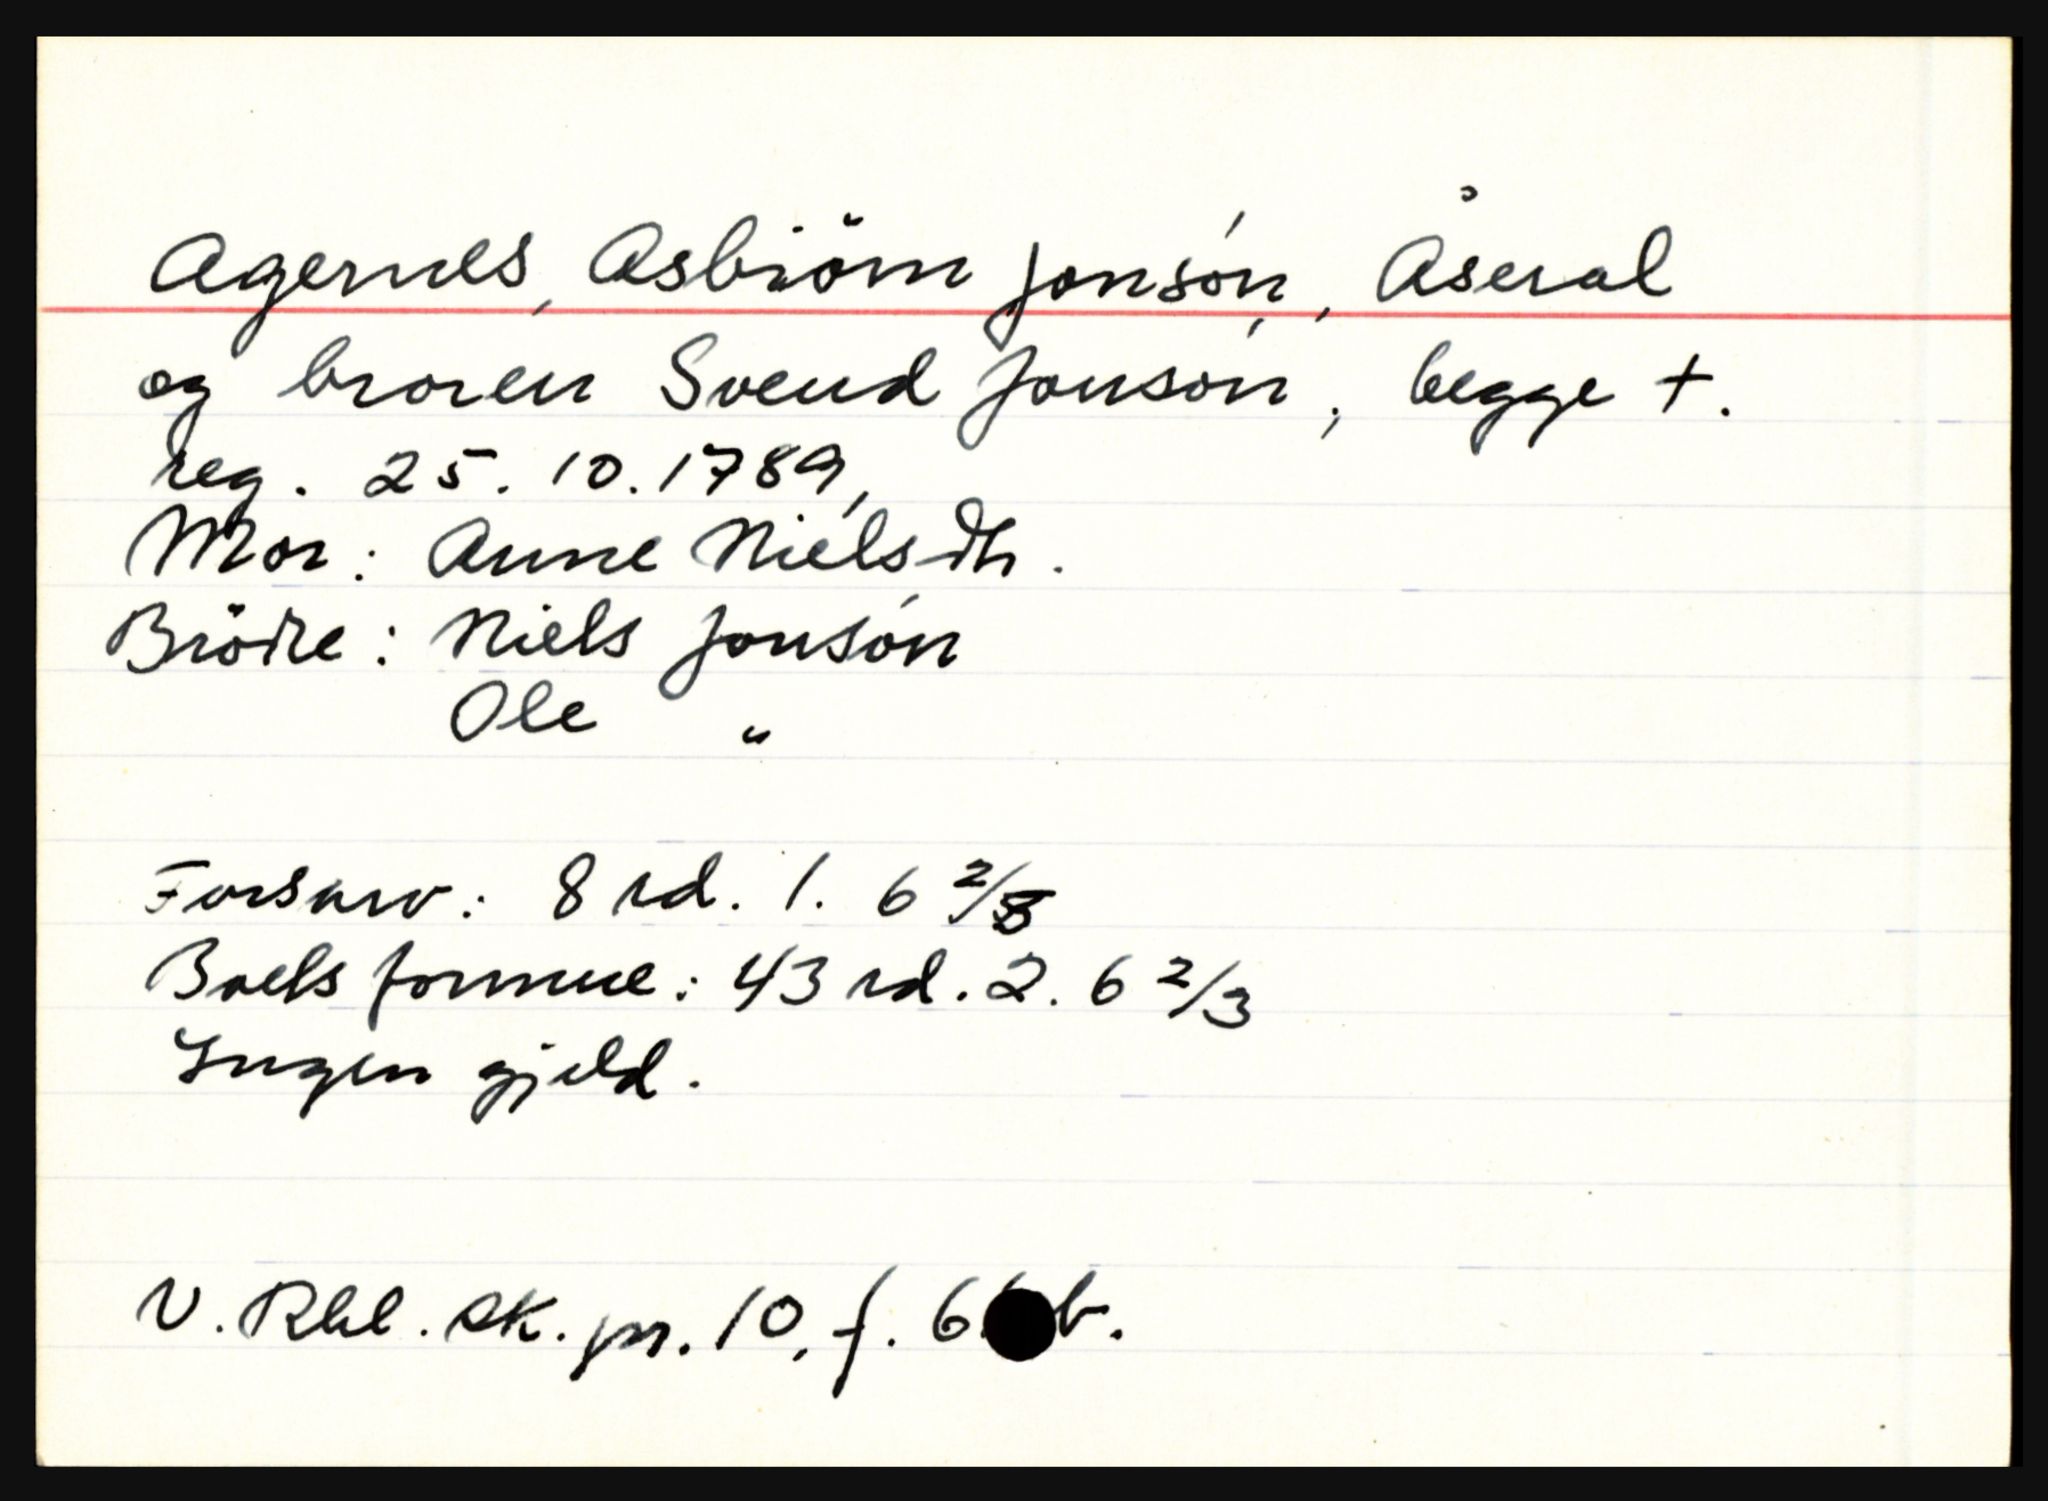 Agernes, Asbiörn Jonsón, Åseral
og broren Svend Jonsón, begge +.
reg. 25. 10. 1789,
Mor: Anne Nielsdtr.
Brödre: Niels Jonsón
Ole "
Farsarv: 8 rd. 1. 6 2/3
Boets formue: 43 rd. 2. 6 2/3
Ingen gjeld.
V. Rbl. sk. pr. 10, f.